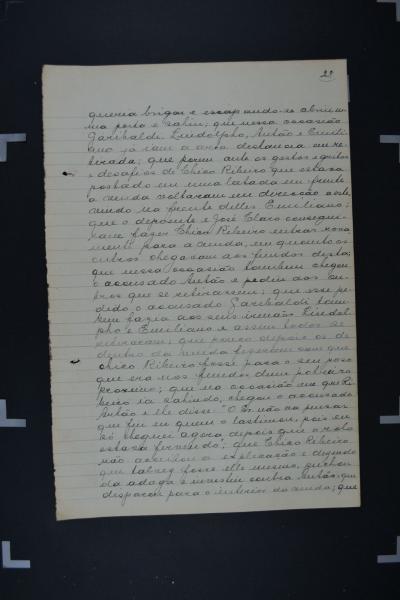 28
queria brigar e escapando-se abriu u-
ma porta e sahiu; que nessa occasião
Garibaldi, Lindolpho, Antão e Emili-
ano já iam a certa distancia em re-
tirada; que porem ante os gestos e gritos
e desafios de Chico Ribeiro que estava
postado em uma latada em frente
a venda voltaram em direcção a este,
vindo na frente delles Emiliano;
que o depoente e José Claro consegui-
ram fazer Chico Ribeiro entrar nova
mente para a venda, em quanto os
outros chegavam aos fundos desta;
que nessa occasião tambem chegou
o accusado Antão e pediu aos ou-
tros que se retirassem; que esse pe-
dido o accusado Garibaldi tam-
bem fazia aos seus irmãos Lindol-
pho e Emiliano e assim todos se
retiraram; que pouco depois os de
dentro da venda fizeram com que
Chico Ribeiro fosse para o seu
que era nos fundos dum potreiro
proximo; que na occasião em que Ri-
beiro ia sahindo, chegou o accusado
Antão e lhe disse: "O Sr. não va pensar
que fui eu quem o lastimou, pois eu
só cheguei agora depois que o
estava fervendo"; que Chico Ribeiro
não acceitou a explicação e dizendo
que talvez fosse elle mesmo, puchou
da adaga e investiu contra Antão, que
disparou para o interior da venda; que